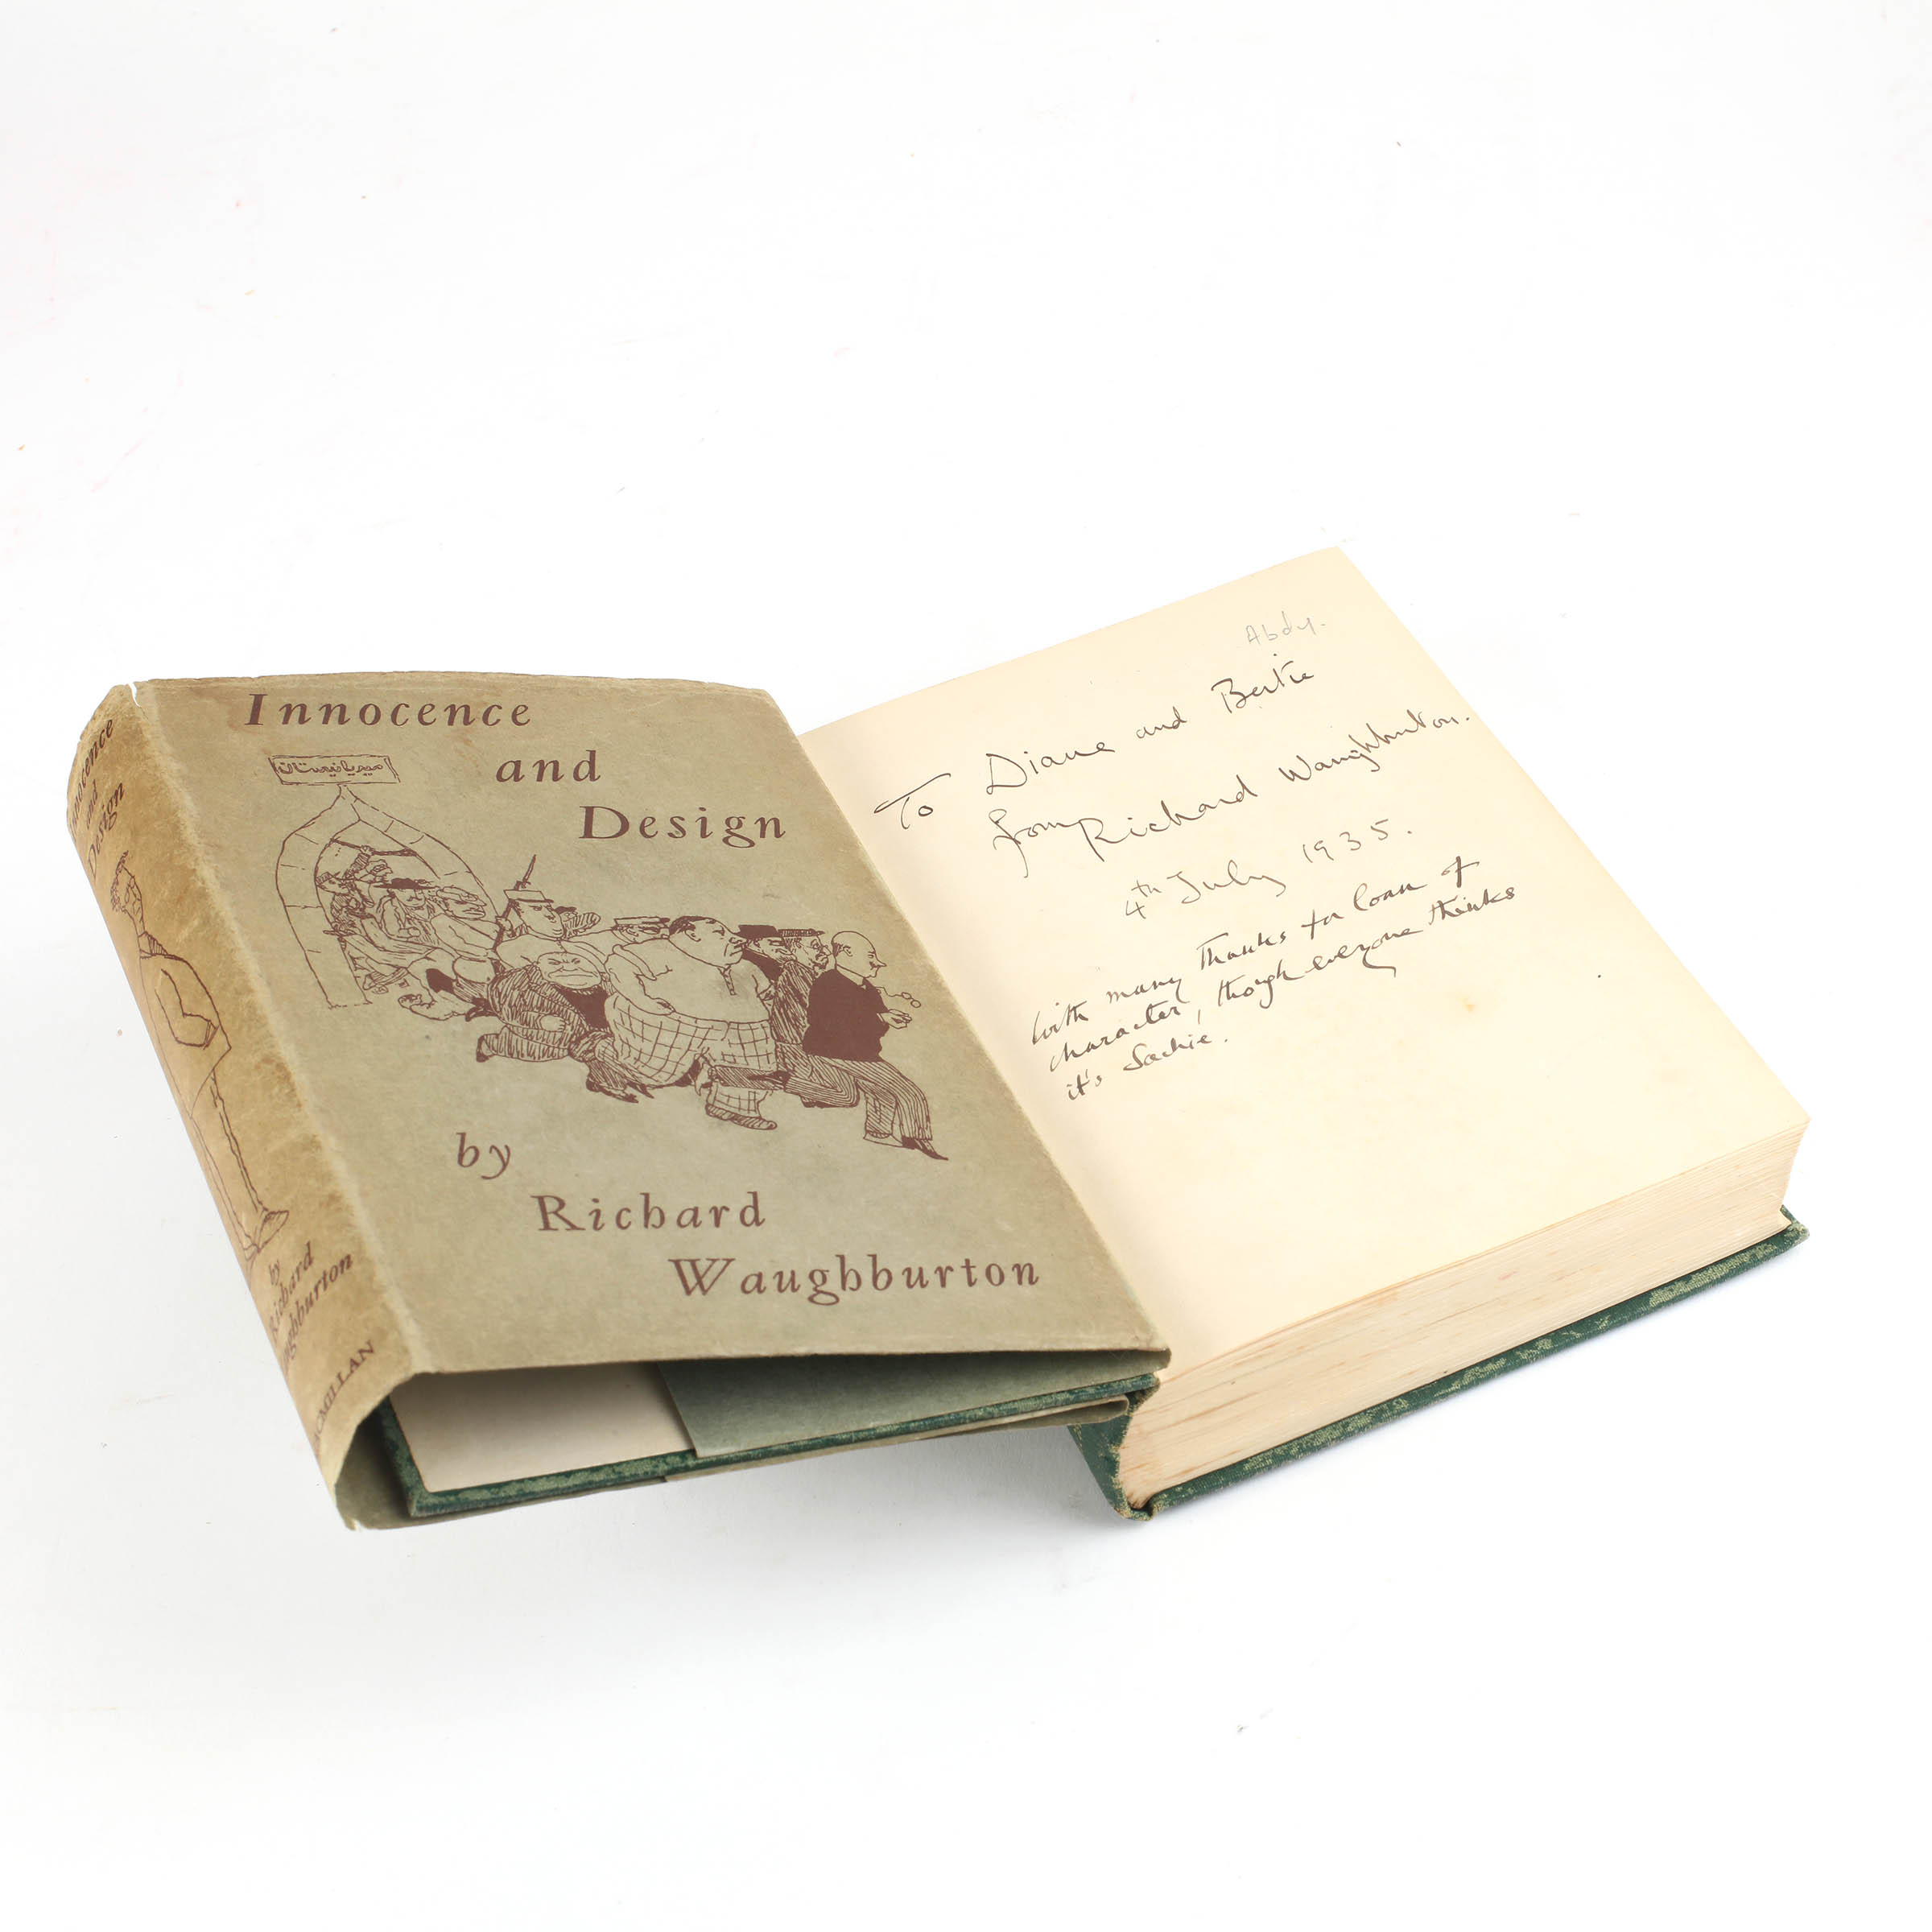 Innocence
and
Design
by
Richard
Waughburton
MACMILLAN
Innocence
and
Design
by
Richard
Waughburton
Abdy.
To Diane and Bertie
from Richard Waughburton.
4th July 1935.
With many thanks for loan of
character, though everyone thinks
it's Sachie.